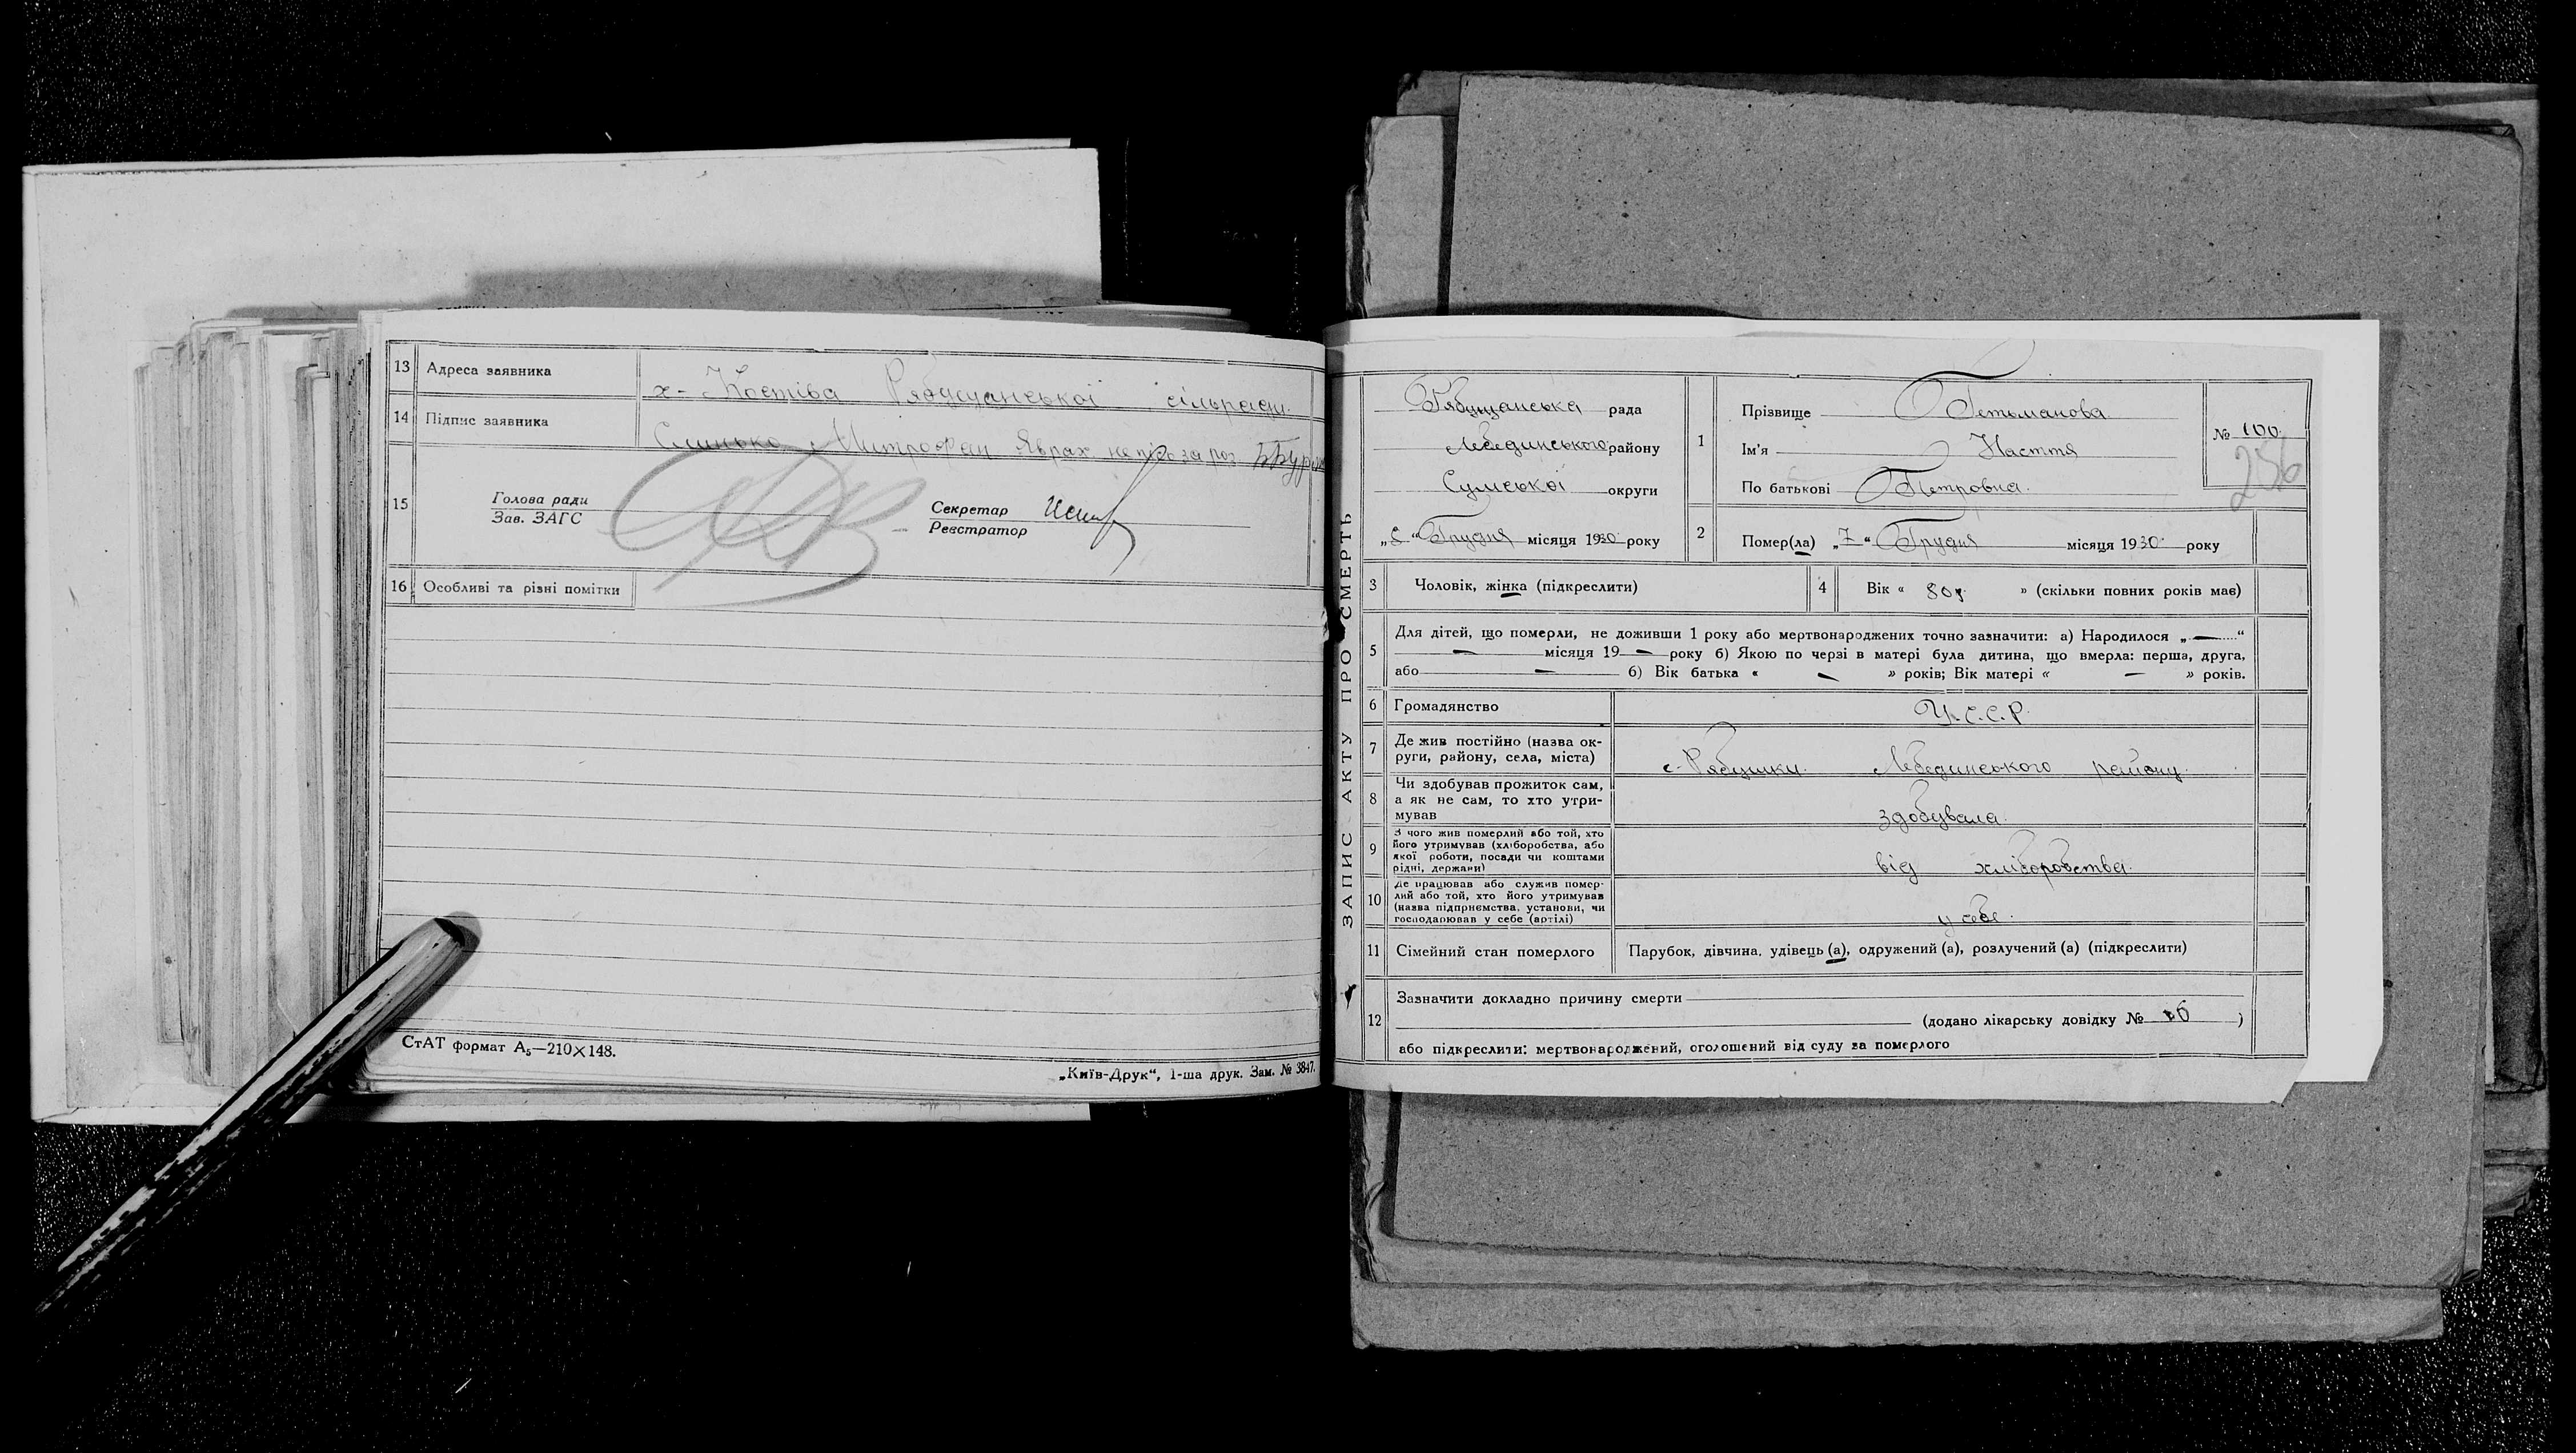 13 Адреса заявника х- Костіва Рябушанської сільради.
14 Підпис заявника Слинько Митрофан
15 Голова ради
Зав. ЗАГС
Секретар
Реєстратор
16 Особливі та різні помітки
СтАТ формат А₅—210×148.
„Київ-Друк“, 1-ша друк. Зам. № 3847.
ЗАПИС АКТУ ПРО СМЕРТЬ
Рябущанська рада
Лебединського району
Сумської округи
„8“ Грудня місяця 1930 року
1 Прізвище Гетьманова
Ім'я Настя
По батькові Петровна.
№ 100.
256
2 Помер(ла) „7“ Грудня місяця 1930 року
3 Чоловік, жінка (підкреслити)
4 Вік « 80 » (скільки повних років має)
5 Для дітей, що померли, не доживши 1 року або мертвонароджених точно зазначити: а) Народилося „—“
— місяця 19 — року б) Якою по черзі в матері була дитина, що вмерла: перша, друга,
або — б) Вік батька « — » років; Вік матері « — » років.
6 Громадянство У.С.С.Р.
7 Де жив постійно (назва ок-
руги, району, села, міста) с. Рябушки Лебединського району
8 Чи здобував прожиток сам,
а як не сам, то хто утри-
мував здобувала
9 З чого жив померлий або той, хто
його утримував (хліборобства, або
якої роботи, посади чи коштами
рідні, держави) від хліборобства.
10 Де працював або служив помер-
лий або той, хто його утримував
(назва підприємства, установи, чи
господарював у себе (артілі) у себе.
11 Сімейний стан померлого Парубок, дівчина, удівець (а), одружений (а), розлучений (а) (підкреслити)
12 Зазначити докладно причину смерти
(додано лікарську довідку № )
або підкреслити: мертвонароджений, оголошений від суду за померлого